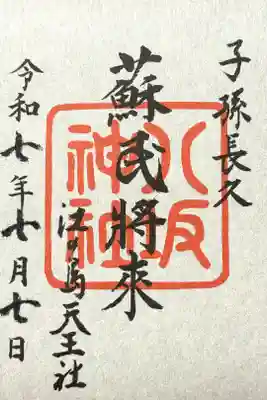 子孫長久
蘇民將来
八坂
神社
江の島天王社
令和七年七月七日